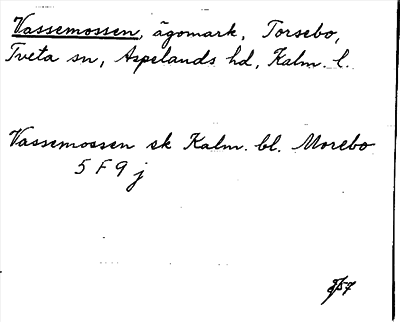 Vassemossen, ägomark, Torsebo,
Tveta sn, Aspelands hd, Kalm. l.
Vassemossen sk Kalm. bl. Morebo
5 F 9 j